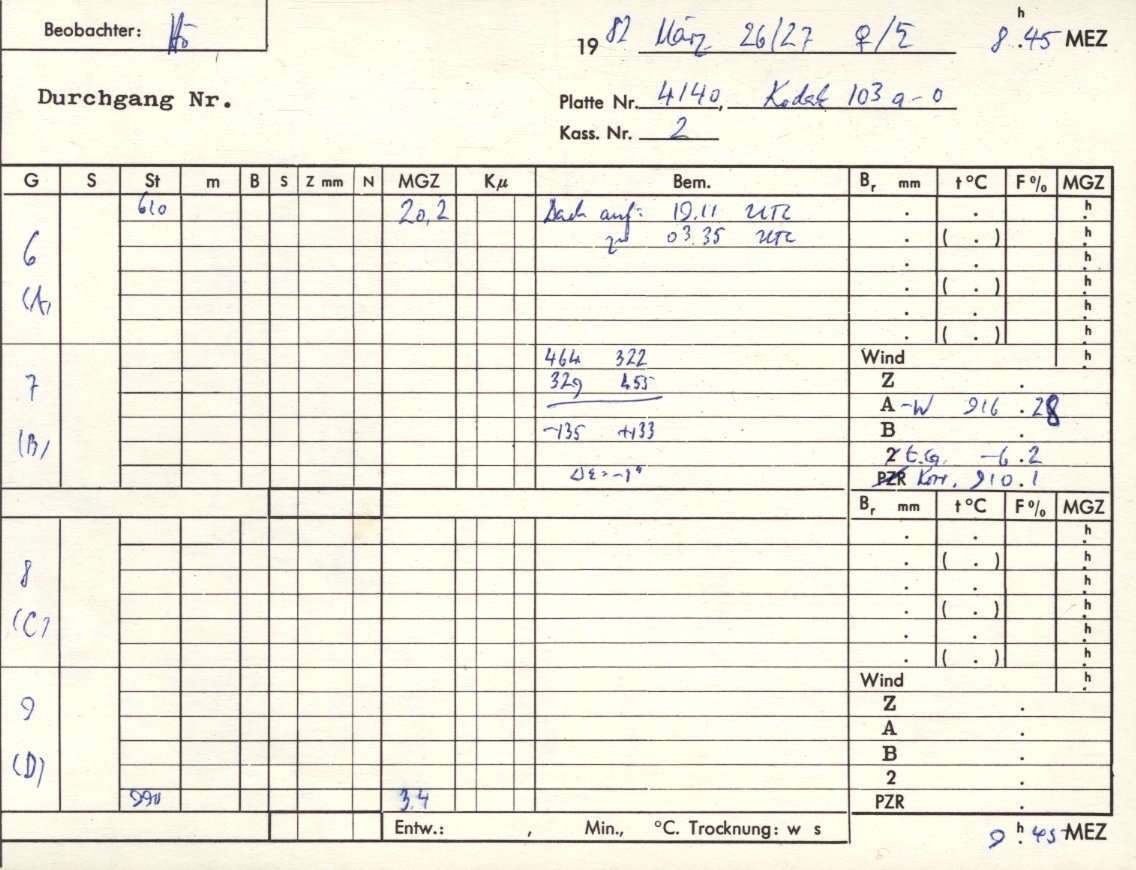 Beobachter: Hö
19 82 März 26/27 ♀/5 8 h .45 MEZ
Durchgang Nr.
Platte Nr. 4140, Kodak 103 a-o
Kass. Nr. 2
G S St m B S Z mm N MGZ Kμ Bem. Br mm t °C F % MGZ
610 20,2 Dach auf: 19.11 UTC . . h
6 zu 03.35 UTC . ( . ) h
. . h
(A) . ( . ) h
. . h
. ( . ) h
464 322 Wind h
7 329 455 Z .
A -W 916 .28
(B) -135 +133 B .
2 t.G. -6.2
Δε=-1" PZR Korr. 910.1
Br mm t °C F % MGZ
. . h
8 . ( . ) h
. . h
(C) . ( . ) h
. . h
. ( . ) h
Wind h
9 Z .
A .
(D) B .
2 .
990 3.4 PZR .
Entw.: , Min., °C. Trocknung: w s
9 h .45 MEZ